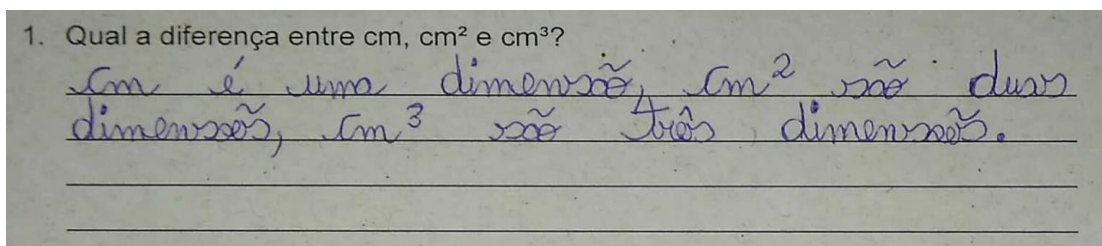 1. Qual a diferença entre cm, cm² e cm³?
cm é uma dimensão, cm² são duas
dimensões, cm³ são três dimensões.